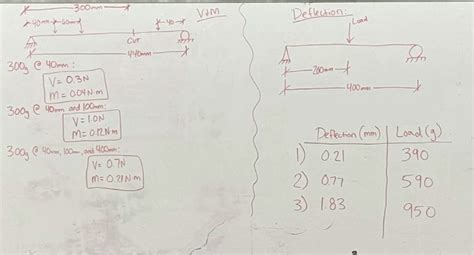 V+M
300mm
40mm 60mm 40
CUT
440mm
300g @ 40mm:
V = 0.3N
M = 0.04N·m
300g @ 40mm and 100mm:
V = 1.0N
M = 0.12N·m
300g @ 40mm, 100mm, and 400mm:
V = 0.7N
M = 0.21N·m
Deflection:
Load
200mm
400mm
Deflection (mm) Load (g)
1) 0.21 390
2) 0.77 590
3) 1.83 950